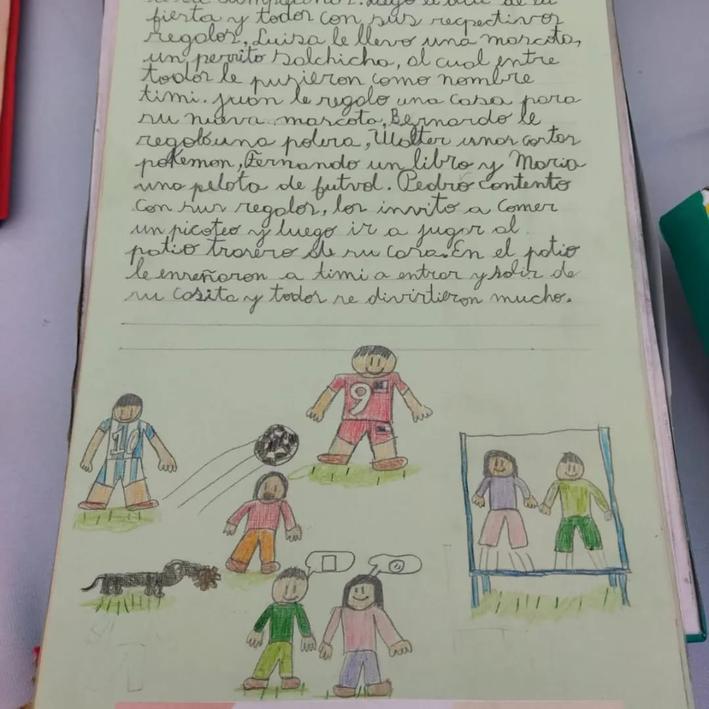 fiesta y todos con sus respectivos
regalos. Luisa le llevo una mascota,
un perrito salchicha, al cual entre
todos le pusieron como nombre
timi. Juan le regalo una casa para
su nueva mascota. Bernardo le
regaló una polera, Walter unas cartas
pokemon, Fernando un libro y Maria
una pelota de futvol. Pedro contento
con sus regalos, los invito a comer
un picoteo y luego ir a jugar al
patio trasero de su casa. En el patio
le enseñaron a timi a entrar y salir de
su casita y todos se divirtieron mucho.
9
10